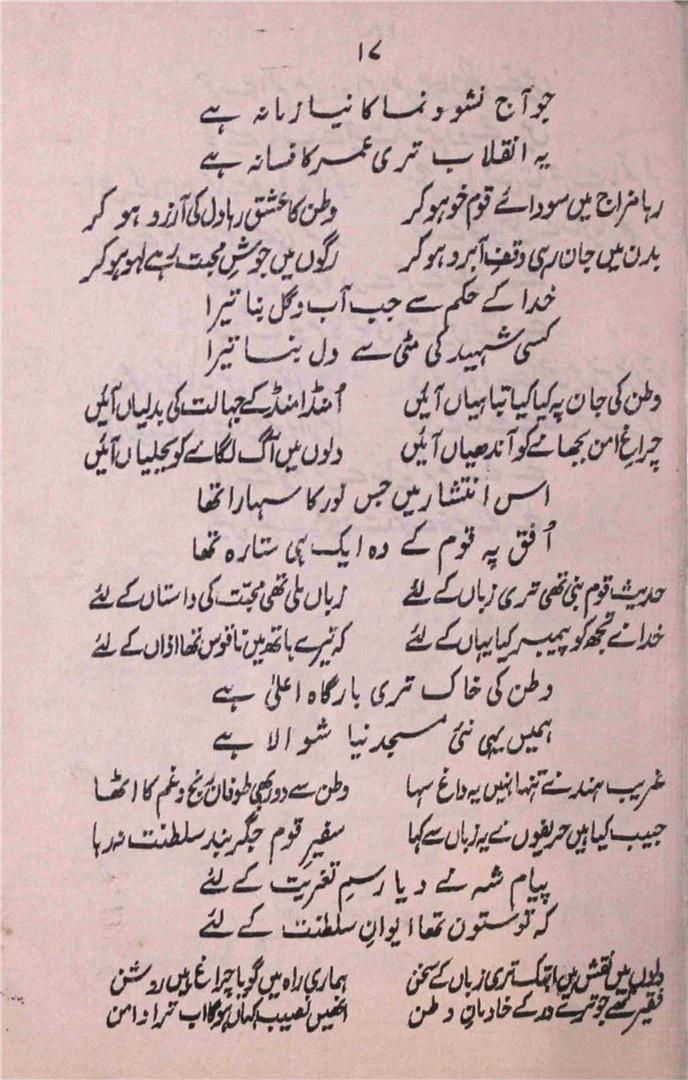 ۱۷
جو آج نشو و نما کا نیا زمانہ ہے
یہ انقلاب تری عمر کا فسانہ ہے
رہا مزاج میں سودائے قوم خو ہو کر وطن کا عشق رہا دل کی آرزو ہو کر
بدن میں جان رہی وقفِ آبرو ہو کر رگوں میں جوشِ محبت رہے لہو ہو کر
خدا کے حکم سے جب آب و گل بنا تیرا
کسی شہید کی مٹی سے دل بنا تیرا
وطن کی جان پہ کیا کیا تباہیاں آئیں اُمنڈ امنڈ کے جہالت کی بدلیاں آئیں
چراغِ امن بجھانے کو آندھیاں آئیں دلوں میں آگ لگانے کو بجلیاں آئیں
اس انتشار میں جس نور کا سہارا تھا
اُفق پہ قوم کے وہ ایک ہی ستارہ تھا
حدیثِ قوم بنی تھی تری زباں کے لئے زباں ملی تھی محبّت کی داستاں کے لئے
خدا نے تجھ کو پیمبر کیا یہاں کے لئے کہ تیرے ہاتھ میں ناقوس تھا اذاں کے لئے
وطن کی خاک تری بارگاہ اعلیٰ ہے
ہمیں یہی نئی مسجد نیا شوالا ہے
غریب ہند نے تنہا نہیں یہ داغ سہا وطن سے دور بھی طوفان رنج و غم کا اٹھا
حبیب کیا ہیں حریفوں نے یہ زباں سے کہا سفیرِ قوم جگر بند سلطنت نہ رہا
پیام شہ نے دیا رسمِ تعزیت کے لئے
کہ تو ستون تھا ایوانِ سلطنت کے لئے
دلوں میں نقش ہیں ابتک تری زباں کے سخن ہماری راہ میں گویا چراغ ہیں روشن
فقیر تھے جو ترے در کے خادمانِ وطن انھیں نصیب کہاں ہوگا اب ترا دامن